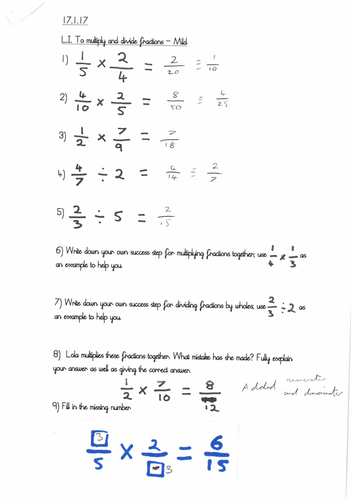 17.1.17
L.I. To multiply and divide fractions – Mild
1) 1/5 × 2/4 = 2/20 = 1/10
2) 4/10 × 2/5 = 8/50 = 4/25
3) 1/2 × 7/9 = 7/18
4) 4/7 ÷ 2 = 4/14 = 2/7
5) 2/3 ÷ 5 = 2/15
6) Write down your own success step for multiplying fractions together; use 1/4 × 1/3 as
an example to help you.
7) Write down your own success step for dividing fractions by wholes; use 2/3 ÷ 2 as
an example to help you.
8) Lola multiplies these fractions together. What mistake has she made? Fully explain
your answer as well as giving the correct answer.
1/2 × 7/10 = 8/12
Added numerator
and denominator
9) Fill in the missing number
3/5 × 2/3 = 6/15